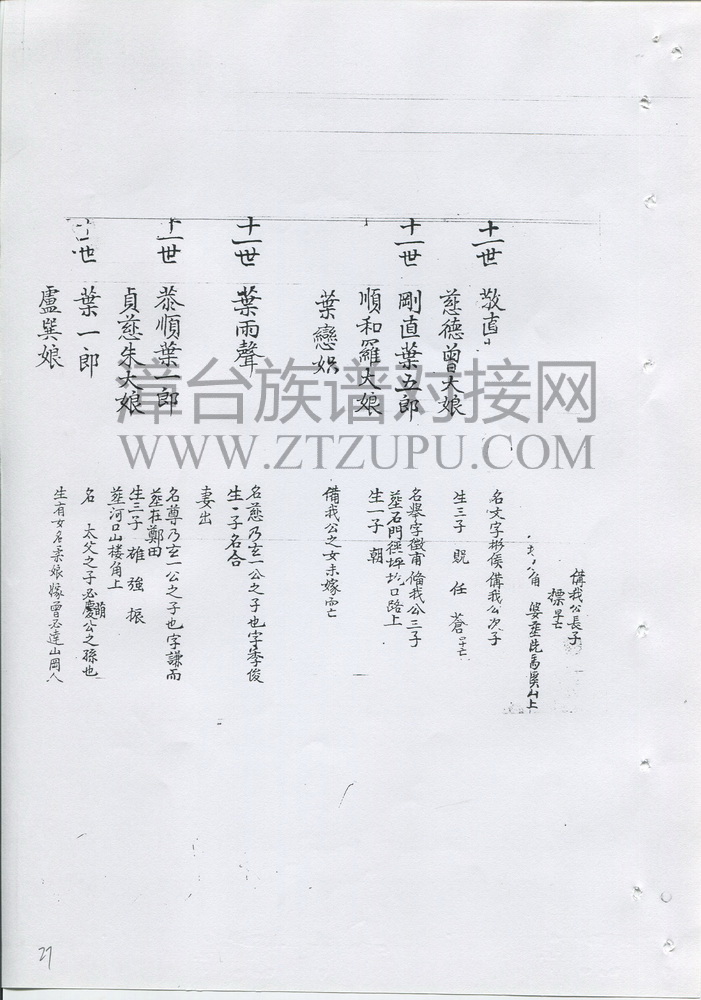 備我公長子
標早亡
婆塋
山上
十一世
敬直
慈德曾大娘
名文字彬侯備我公次子
生三子 既 任 蒼
十一世
剛直葉五郎
順和羅大娘
名舉字徵甫備我公三子
塋石門徑坪坑口路上
生一子 朝
葉戀娘
備我公之女未嫁而亡
十一世
葉雨聲
名慈乃玄一公之子也字季俊
生一子名合
妻出
十一世
恭順葉一郎
貞慈朱大娘
名尊乃玄一公之子也字謙而
塋在鄭田
生三子 雄 強 振
塋河口山楼角上
十一世
葉一郎
盧巽娘
名 太父之子必慶公之孫也
萌
生有女名柔娘嫁曾必達山岡人
27
漳台族谱对接网
WWW.ZTZUPU.COM